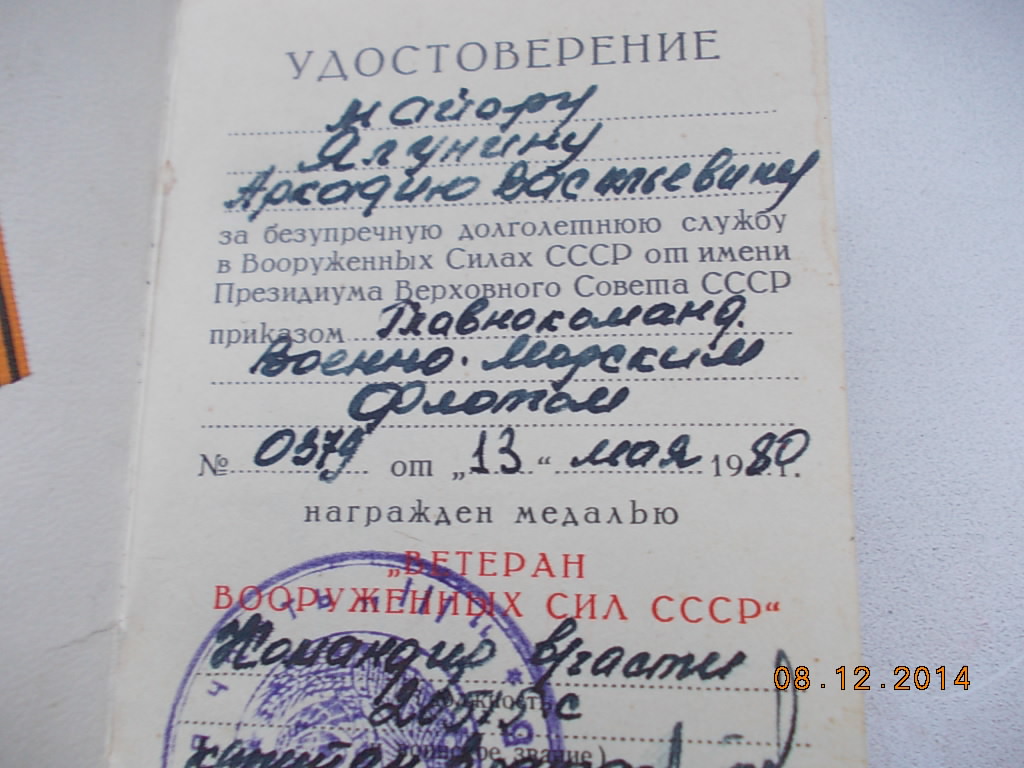 УДОСТОВЕРЕНИЕ
майору
Ялунину
Аркадию Васильевичу
за безупречную долголетнюю службу
в Вооруженных Силах СССР от имени
Президиума Верховного Совета СССР
приказом Главнокоманд.
Военно-Морским
Флотом
№ 0379 от „13“ мая 1980 г.
награжден медалью
„ВЕТЕРАН
ВООРУЖЕННЫХ СИЛ СССР“
Командир в/части
должность
капитан
воинское звание)
08.12.2014